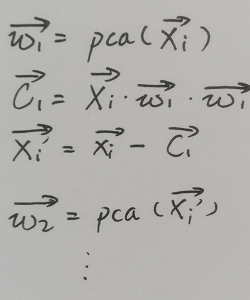 w₁⃗ = pca(X⃗ᵢ)
C₁⃗ = X⃗ᵢ · w₁⃗ · w₁⃗
X⃗ᵢ′ = x⃗ᵢ − C₁⃗
w₂⃗ = pca (X⃗ᵢ′)
⋮